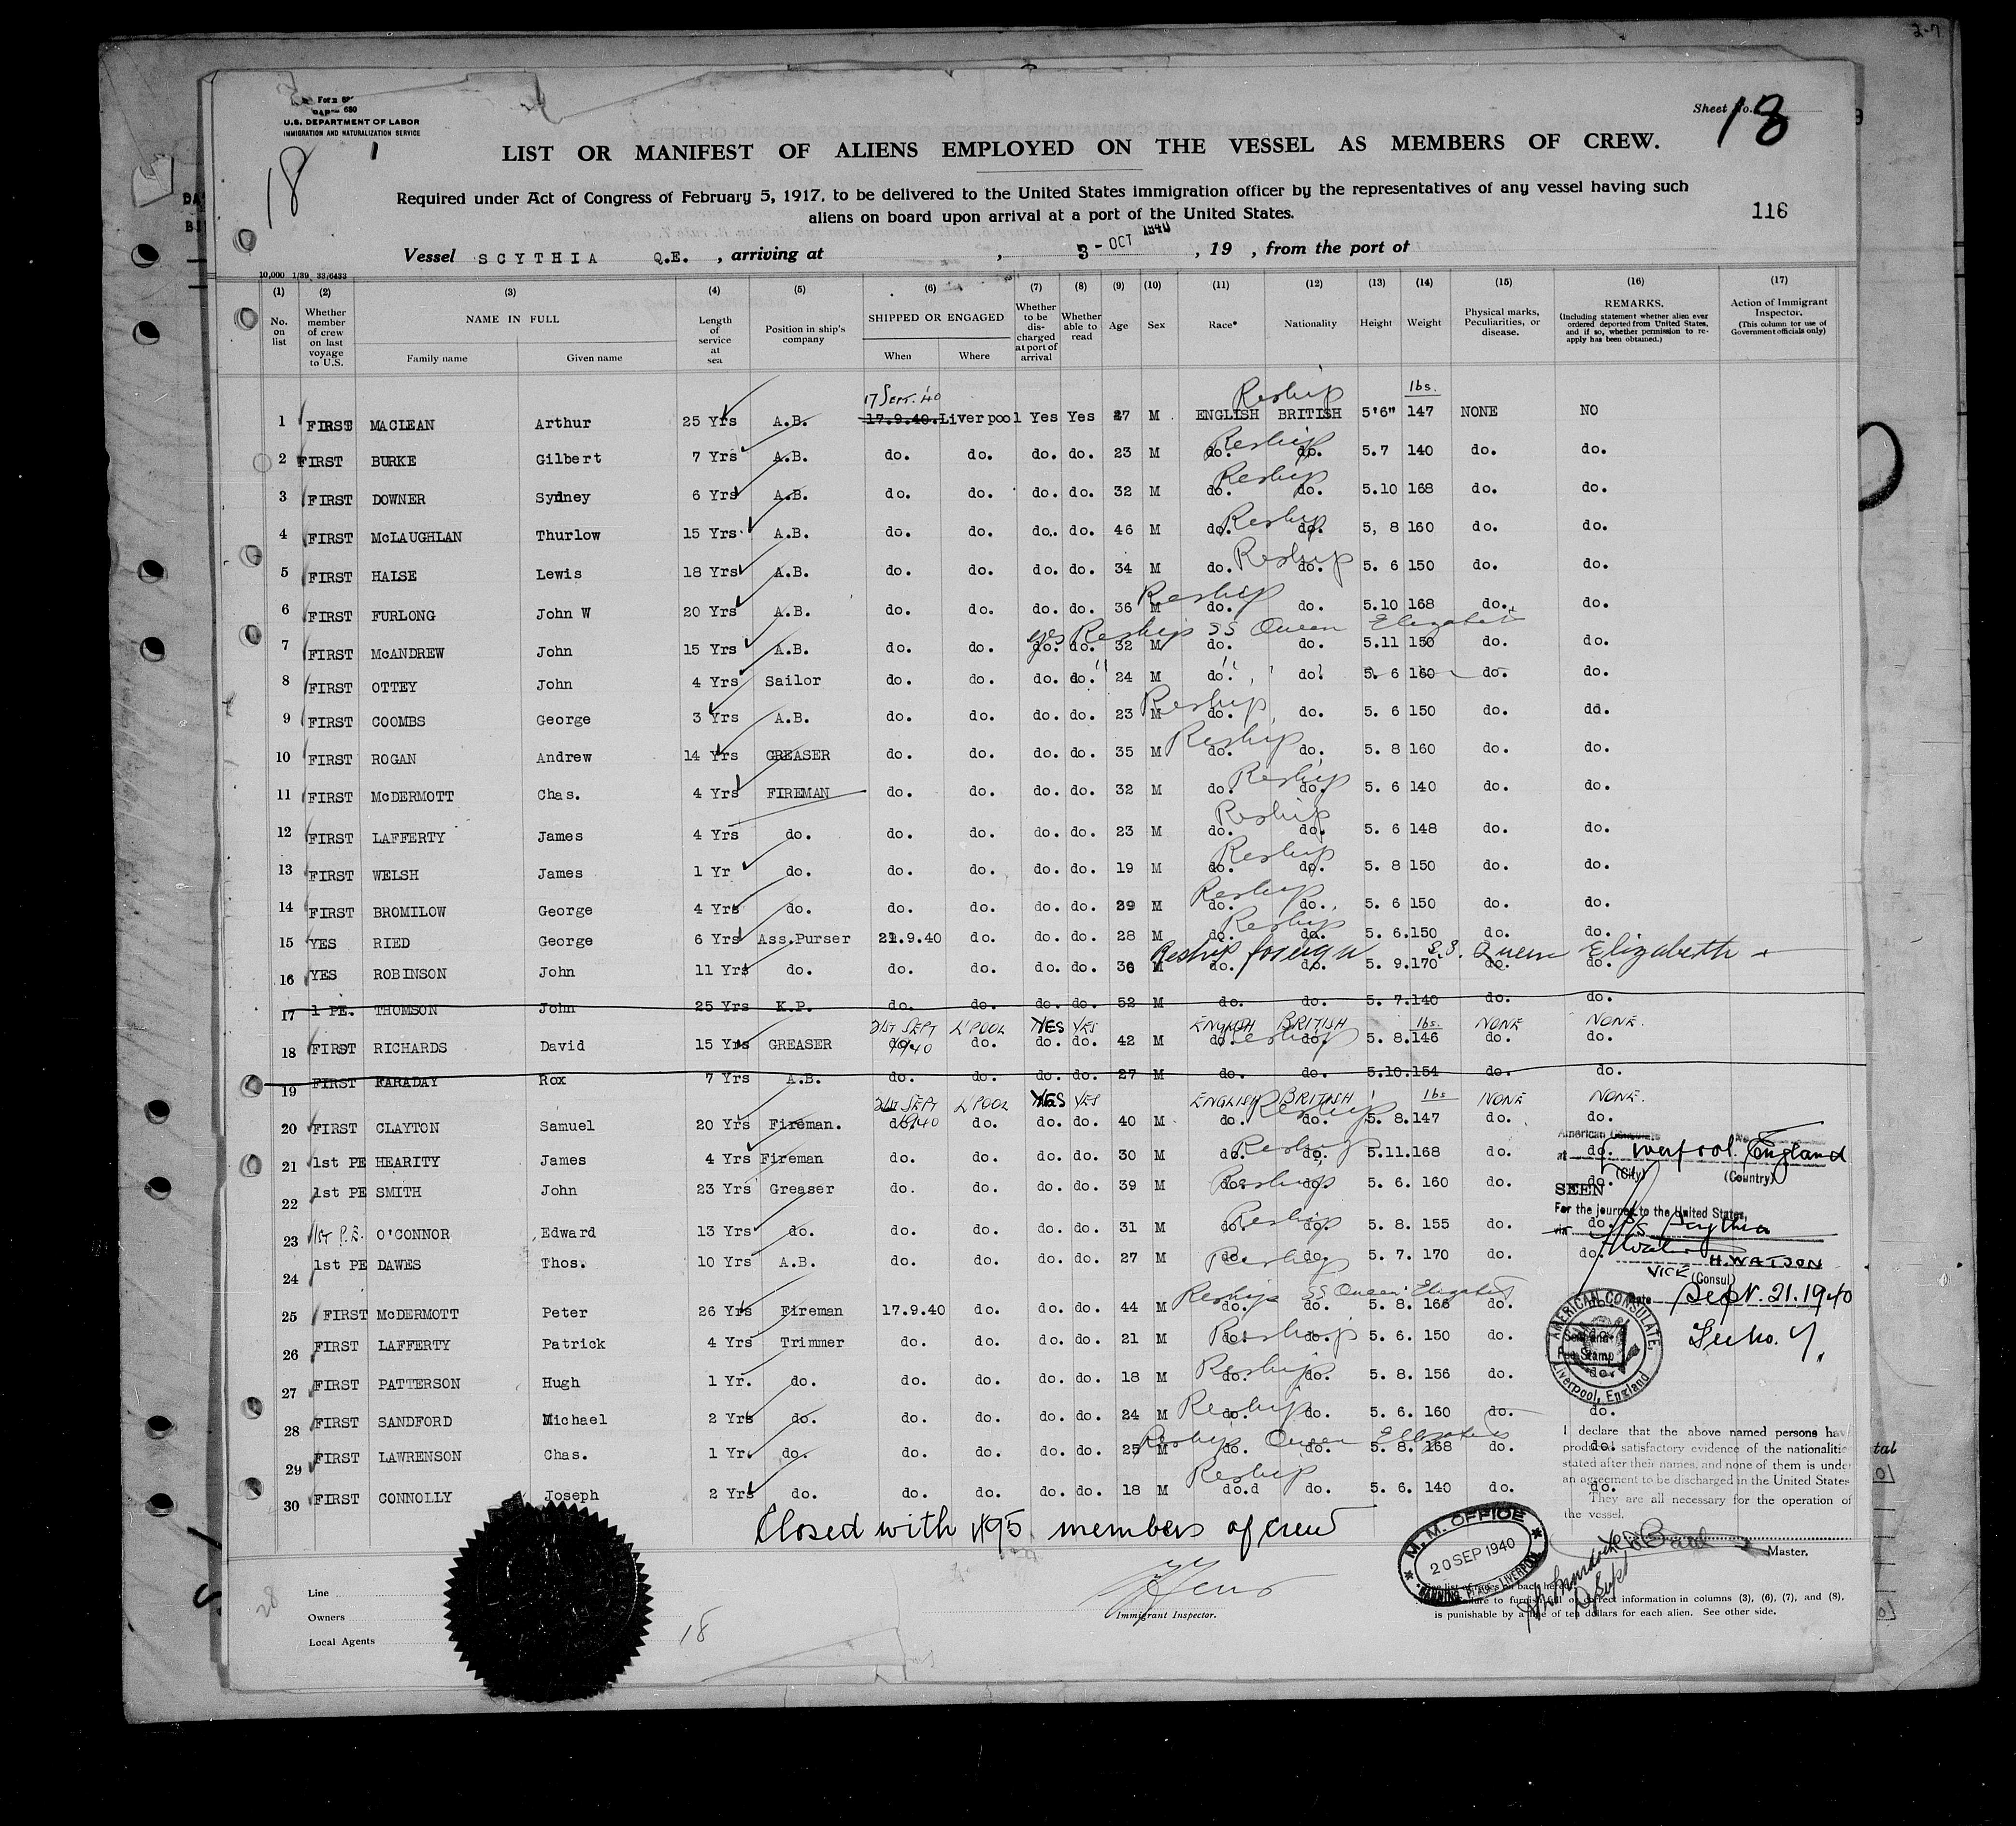 2-7
Form 680
U.S. DEPARTMENT OF LABOR
IMMIGRATION AND NATURALIZATION SERVICE
Sheet No. 18
18
LIST OR MANIFEST OF ALIENS EMPLOYED ON THE VESSEL AS MEMBERS OF CREW.
Required under Act of Congress of February 5, 1917, to be delivered to the United States immigration officer by the representatives of any vessel having such
aliens on board upon arrival at a port of the United States.
116
Vessel SCYTHIA Q.E. , arriving at , 3 - OCT 1940 , 19 , from the port of
10,000 1/39 33/6433
(1) (2) (3) (4) (5) (6) (7) (8) (9) (10) (11) (12) (13) (14) (15) (16) (17)
No. on list
Whether member of crew on last voyage to U.S.
NAME IN FULL
Family name Given name
Length of service at sea
Position in ship's company
SHIPPED OR ENGAGED
When Where
Whether to be discharged at port of arrival
Whether able to read
Age
Sex
Race*
Nationality
Height
Weight
Physical marks, Peculiarities, or disease.
REMARKS. (Including statement whether alien ever ordered deported from United States, and if so, whether permission to re-apply has been obtained.)
Action of Immigrant Inspector. (This column for use of Government officials only)
17 Sept. '40 Reship lbs.
1 FIRST MACLEAN Arthur 25 Yrs A.B. 17.9.40. Liverpool Yes Yes 27 M ENGLISH BRITISH 5'6" 147 NONE NO
Reship
2 FIRST BURKE Gilbert 7 Yrs A.B. do. do. do. do. 23 M do. do. 5.7 140 do. do.
Reship
3 FIRST DOWNER Sydney 6 Yrs A.B. do. do. do. do. 32 M do. do. 5.10 168 do. do.
Reship
4 FIRST McLAUGHLAN Thurlow 15 Yrs A.B. do. do. do. do. 46 M do. do. 5, 8 160 do. do.
Reship
5 FIRST HALSE Lewis 18 Yrs A.B. do. do. do. do. 34 M do. do. 5. 6 150 do. do.
Reship
6 FIRST FURLONG John W 20 Yrs A.B. do. do. do. do. 36 M do. do. 5.10 168 do. do.
yes Reship SS Queen Elizabeth
7 FIRST McANDREW John 15 Yrs A.B. do. do. do. do. 32 M do. do. 5.11 150 do. do.
8 FIRST OTTEY John 4 Yrs Sailor do. do. do. do. 24 M do. do. 5. 6 160 do. do.
Reship
9 FIRST COOMBS George 3 Yrs A.B. do. do. do. do. 23 M do. do. 5. 6 150 do. dd.
Reship
10 FIRST ROGAN Andrew 14 Yrs GREASER do. do. do. do. 35 M do. do. 5. 8 160 do. do.
Reship
11 FIRST McDERMOTT Chas. 4 Yrs FIREMAN do. do. do. do. 32 M do. do. 5. 6 140 do. do.
Reship
12 FIRST LAFFERTY James 4 Yrs do. do. do. do. do. 23 M do. do. 5. 6 148 do. do.
Reship
13 FIRST WELSH James 1 Yr do. do. do. do. do. 19 M do. do. 5. 8 150 do. do.
Reship
14 FIRST BROMILOW George 4 Yrs do. do. do. do. do. 29 M do. do. 5. 6 150 do. do.
Reship
15 YES RIED George 6 Yrs Ass.Purser 21.9.40 do. do. do. 28 M do. do. 5. 6.150 do. do.
Reship foreign S.S. Queen Elizabeth
16 YES ROBINSON John 11 Yrs do. do. do. do. do. 36 M do. do. 5. 9.170 do. do.
17 1 PE. THOMSON John 25 Yrs K.P. do. do. do. do. 52 M do. do. 5. 7.140 do. do.
21ST SEPT 1940 L'POOL YES YES ENGLISH BRITISH lbs. NONE NONE.
18 FIRST RICHARDS David 15 Yrs GREASER do. do. do. do. 42 M do. Reship do. 5. 8.146 do. do.
19 FIRST FARADAY Rox 7 Yrs A.B. do. do. do. do. 27 M do. do. 5.10.154 do. do.
21st SEPT 1940 L'POOL YES YES ENGLISH BRITISH lbs NONE NONE.
Reship
20 FIRST CLAYTON Samuel 20 Yrs Fireman. do. do. do. do. 40 M do. do. 5. 8.147 do. do.
Reship
21 1st PE HEARITY James 4 Yrs Fireman do. do. do. do. 30 M do. do. 5.11.168 do. do.
Reship
22 1st PE SMITH John 23 Yrs Greaser do. do. do. do. 39 M do. do. 5. 6. 160 do. do.
Reship
23 1ST P.E. O'CONNOR Edward 13 Yrs do. do. do. do. do. 31 M do. do. 5. 8. 155 do. do.
Reship
24 1st PE DAWES Thos. 10 Yrs A.B. do. do. do. do. 27 M do. do. 5. 7. 170 do. do.
Reship SS Queen Elizabeth
25 FIRST McDERMOTT Peter 26 Yrs Fireman 17.9.40 do. do. do. 44 M do. do. 5. 8. 166 do. do.
Reship
26 FIRST LAFFERTY Patrick 4 Yrs Trimmer do. do. do. do. 21 M do. do. 5. 6. 150 do. do.
Reship
27 FIRST PATTERSON Hugh 1 Yr. do. do. do. do. do. 18 M do. do. 5. 8. 156 do. do.
Reship
28 FIRST SANDFORD Michael 2 Yrs do. do. do. do. do. 24 M do. do. 5. 6. 160 do. do.
Reship Queen Elizabeth
29 FIRST LAWRENSON Chas. 1 Yr. do. do. do. do. do. 25 M do. do. 5. 8. 168 do. do.
Reship
30 FIRST CONNOLLY Joseph 2 Yrs do. do. do. do. do. 18 M do.d do. 5. 6. 140 do. do.
American Consulate
at Liverpool England
(City) (Country)
SEEN
For the journey to the United States,
via S/S Scythia
H. WATSON
VICE (Consul)
Date Sept. 21. 1940
AMERICAN CONSULATE.
Liverpool, England
Fee Stamp
I declare that the above named persons have
produced satisfactory evidence of the nationalitie
stated after their names, and none of them is under
an agreement to be discharged in the United States
They are all necessary for the operation of
the vessel.
Master.
Closed with 495 members of crew
M. M. OFFICE
20 SEP 1940
CANNING PLACE, LIVERPOOL
Line
Owners
Local Agents
28
18
Immigrant Inspector.
See list of races on back hereof
Failure to furnish full or correct information in columns (3), (6), (7), and (8),
is punishable by a fine of ten dollars for each alien. See other side.